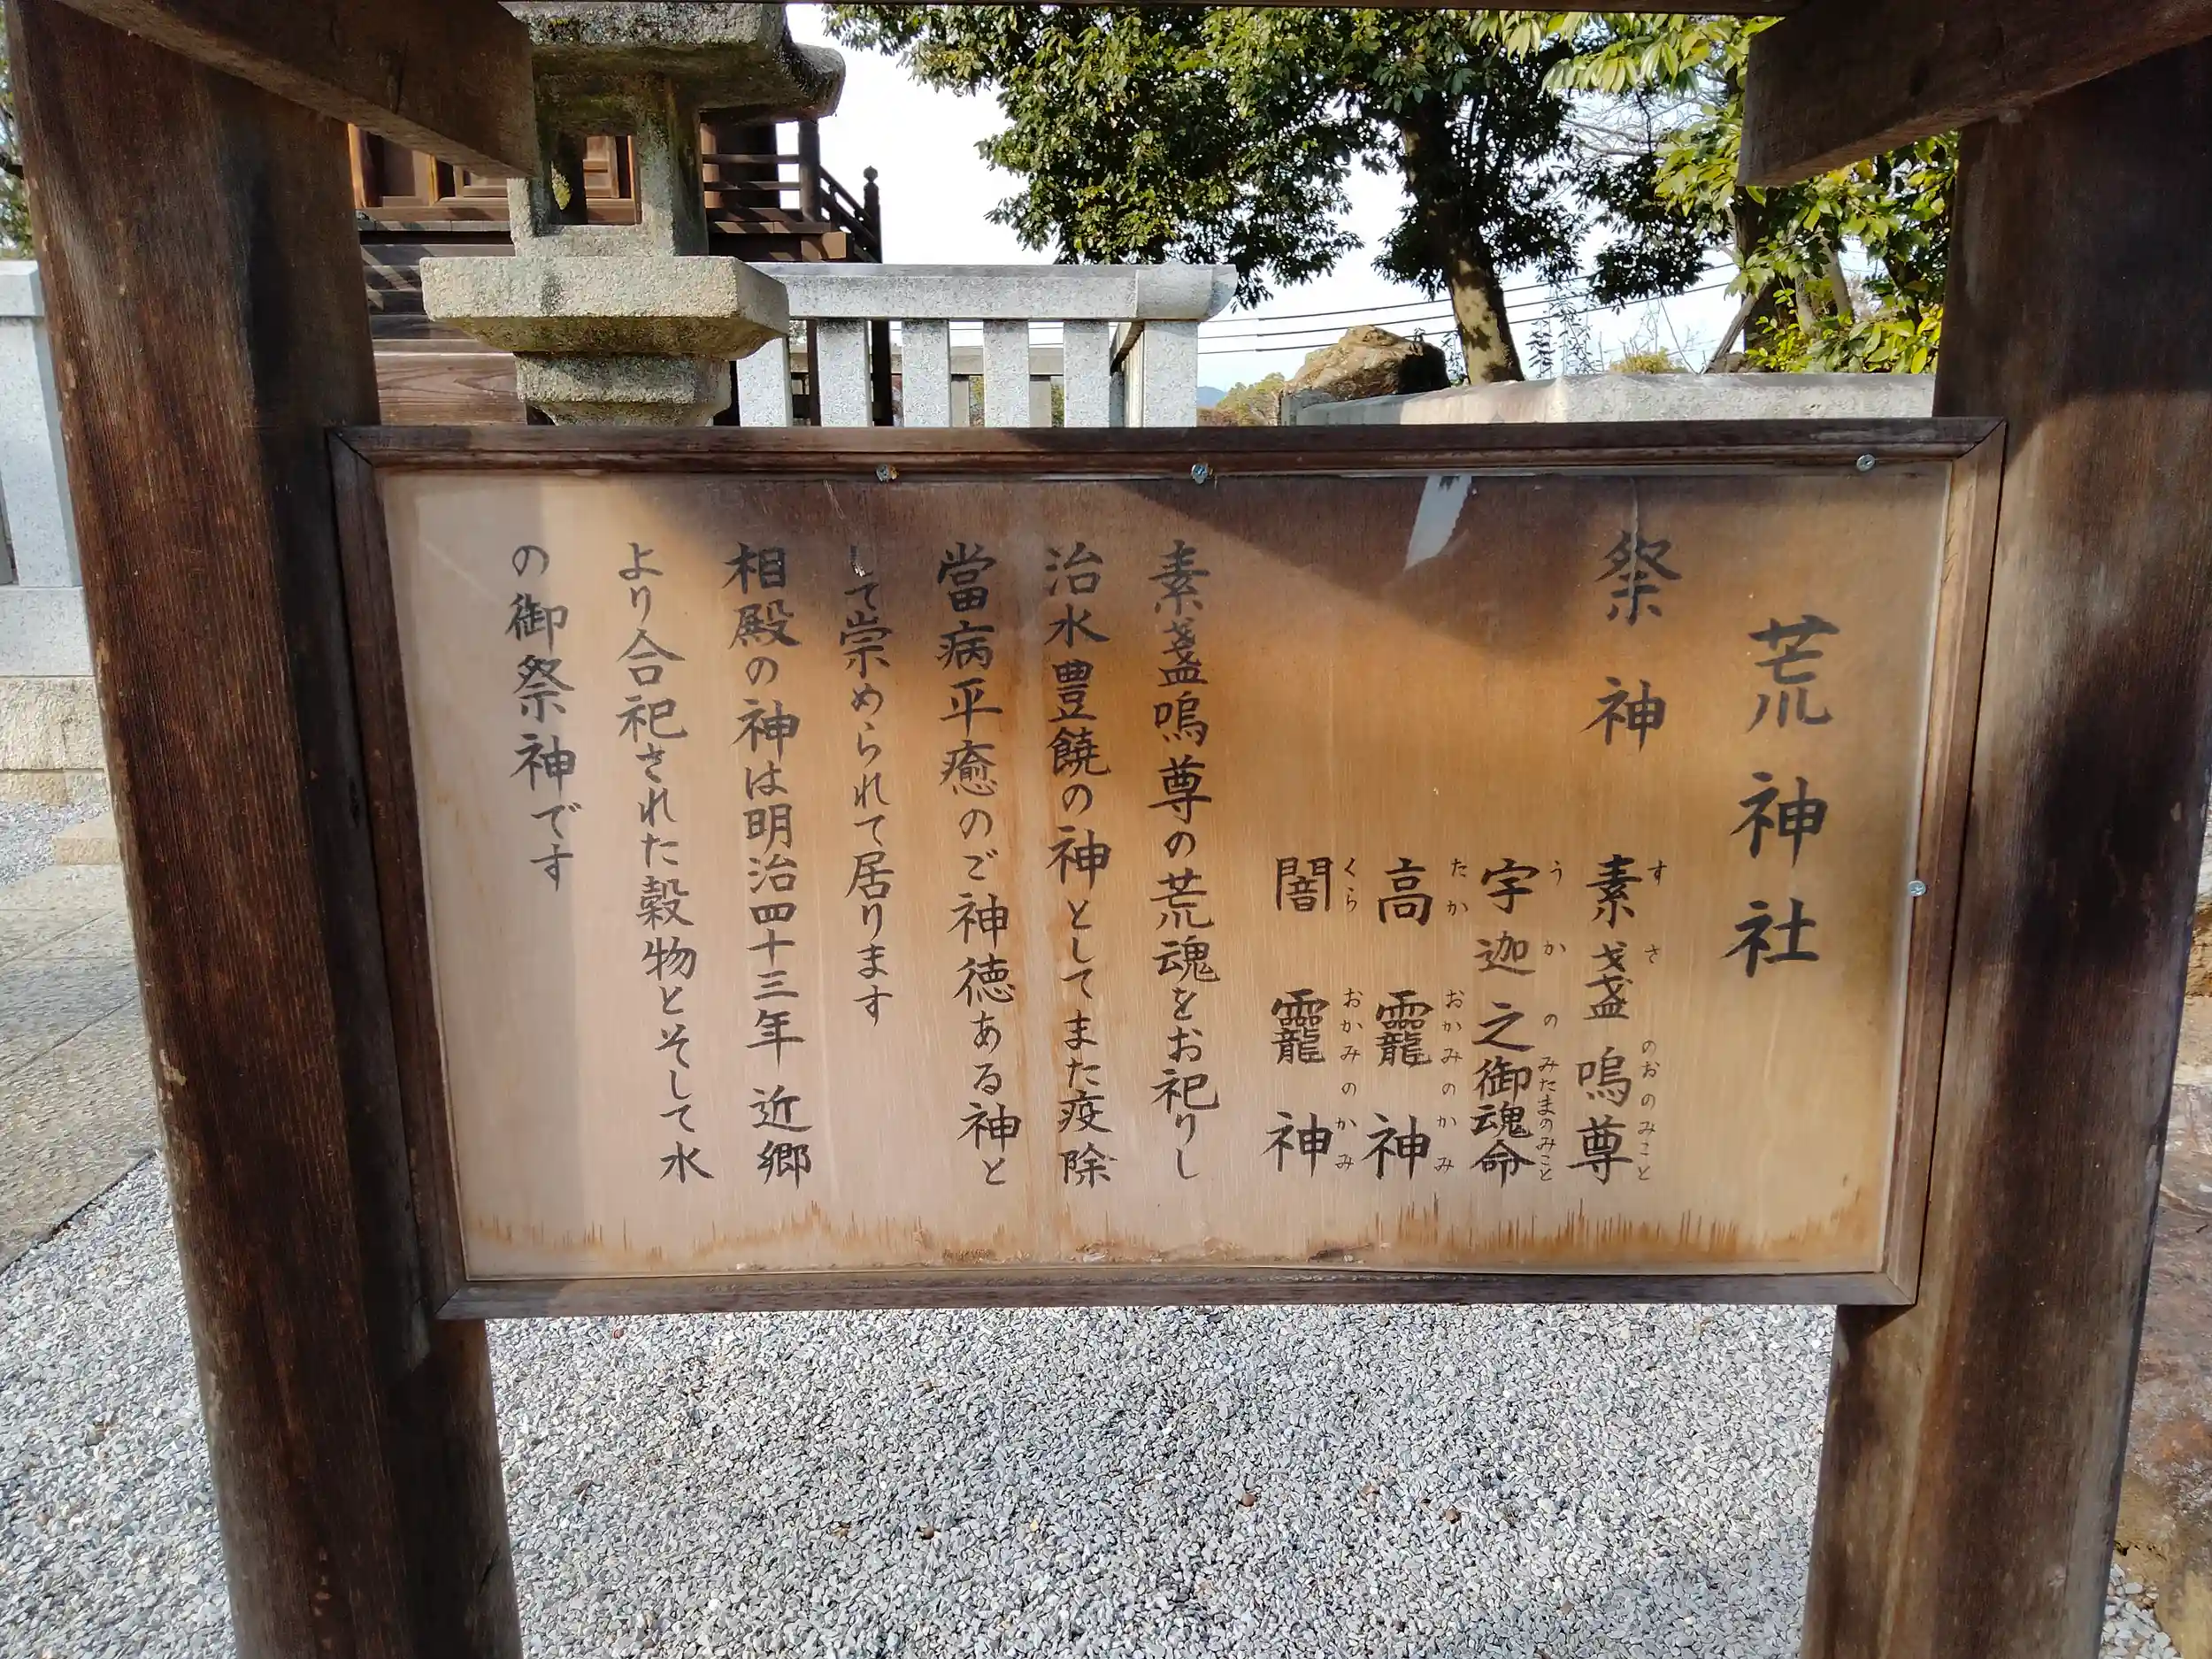 荒神社
祭神
素盞嗚尊
すさのおのみこと
宇迦之御魂命
うかのみたまのみこと
高龗神
たかおかみのかみ
闇龗神
くらおかみのかみ
素盞嗚尊の荒魂をお祀りし
治水豊饒の神としてまた疫除
當病平癒のご神徳ある神と
して崇められて居ります
相殿の神は明治四十三年 近郷
より合祀された穀物とそして水
の御祭神です